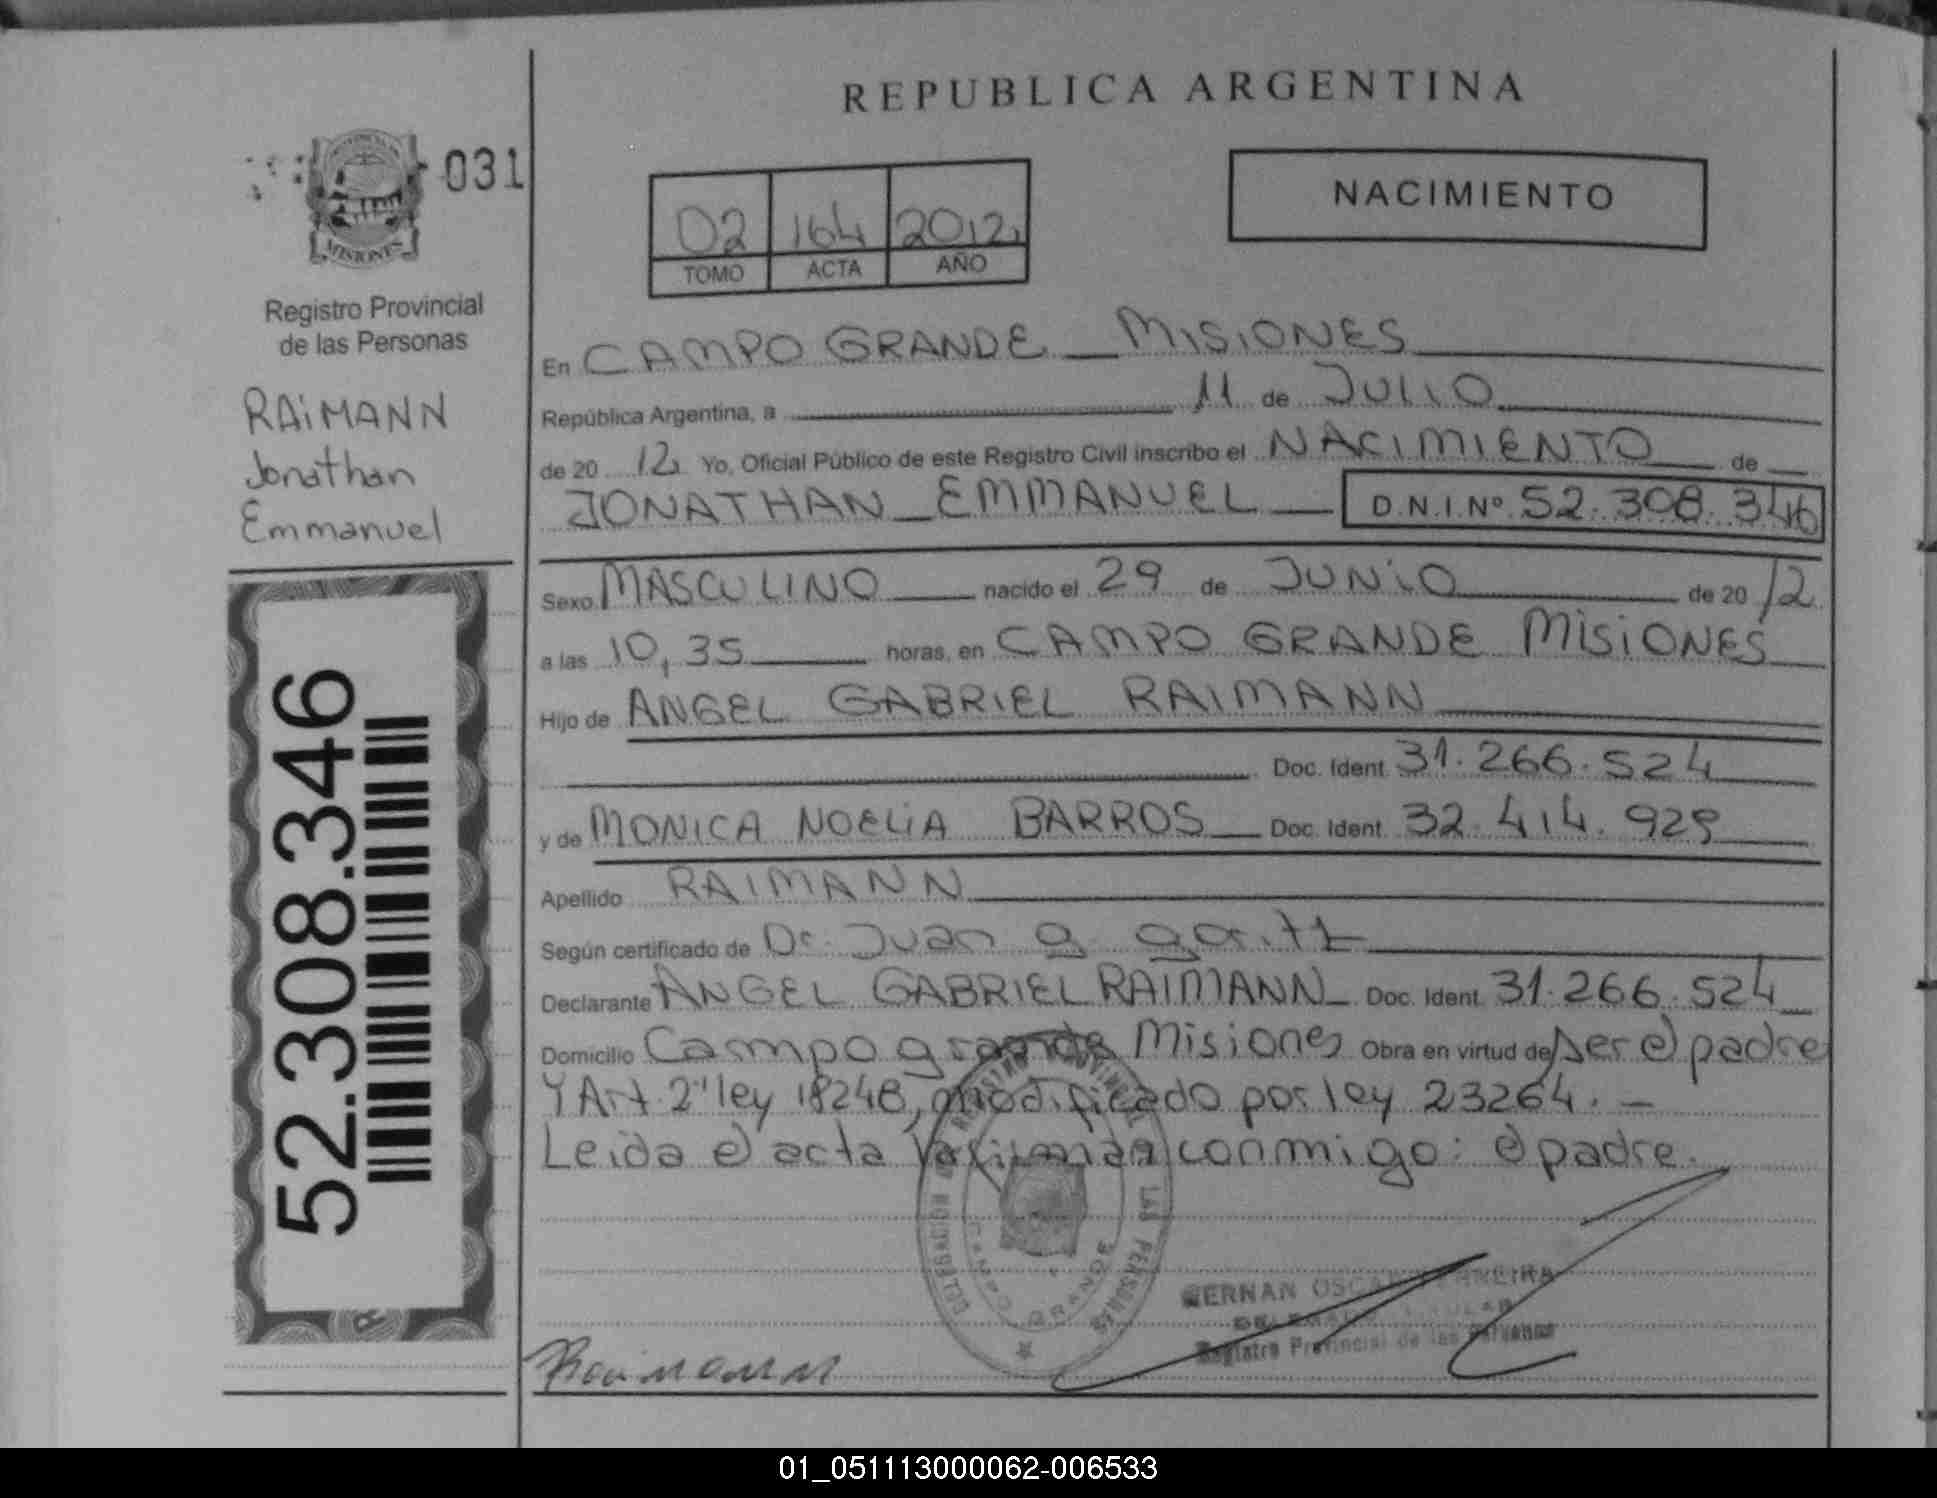 REPUBLICA ARGENTINA
031
MISIONES
Registro Provincial
de las Personas
RAIMANN
Jonathan
Emmanuel
52.308.346
02 164 2012
TOMO ACTA AÑO
NACIMIENTO
En CAMPO GRANDE MISIONES
República Argentina, a 11 de JULIO
de 20 12 Yo, Oficial Público de este Registro Civil inscribo el NACIMIENTO de
JONATHAN EMMANUEL D.N.I.Nº 52.308.346
Sexo MASCULINO nacido el 29 de JUNIO de 20 12
a las 10,35 horas, en CAMPO GRANDE MISIONES
Hijo de ANGEL GABRIEL RAIMANN
Doc. Ident. 31.266.524
y de MONICA NOELIA BARROS Doc. Ident. 32.414.929
Apellido RAIMANN
Según certificado de Dr. Juan
Declarante ANGEL GABRIEL RAIMANN Doc. Ident. 31.266.524
Domicilio Campo grande Misiones Obra en virtud de ser el padre
Y Art. 2" ley 18248, modificado por ley 23264. -
Leida el acta la firman conmigo: el padre.
DELEGACION REGISTRO PROVINCIAL LAS PERSONAS
CAMPO GRANDE
Registro Provincial de las Personas
Raimann
01_051113000062-006533